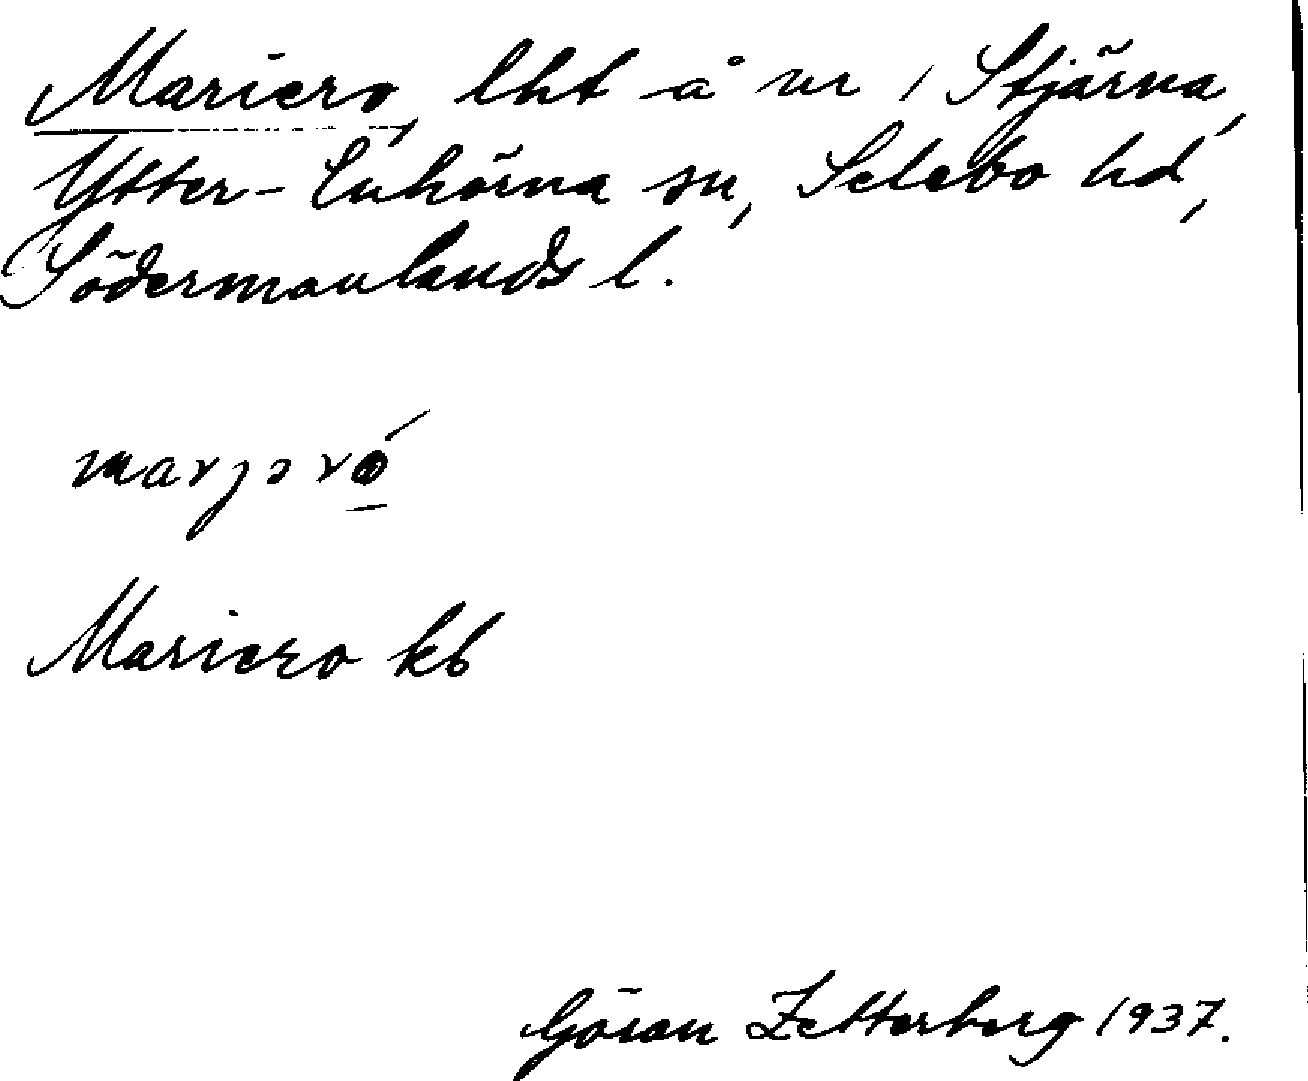 Mariero, lht å nr 1 Stjärna,
Ytter-Enhörna sn, Selebo hd,
Södermanlands l.
marjəró
Mariero kb
Göran Zetterberg 1937.